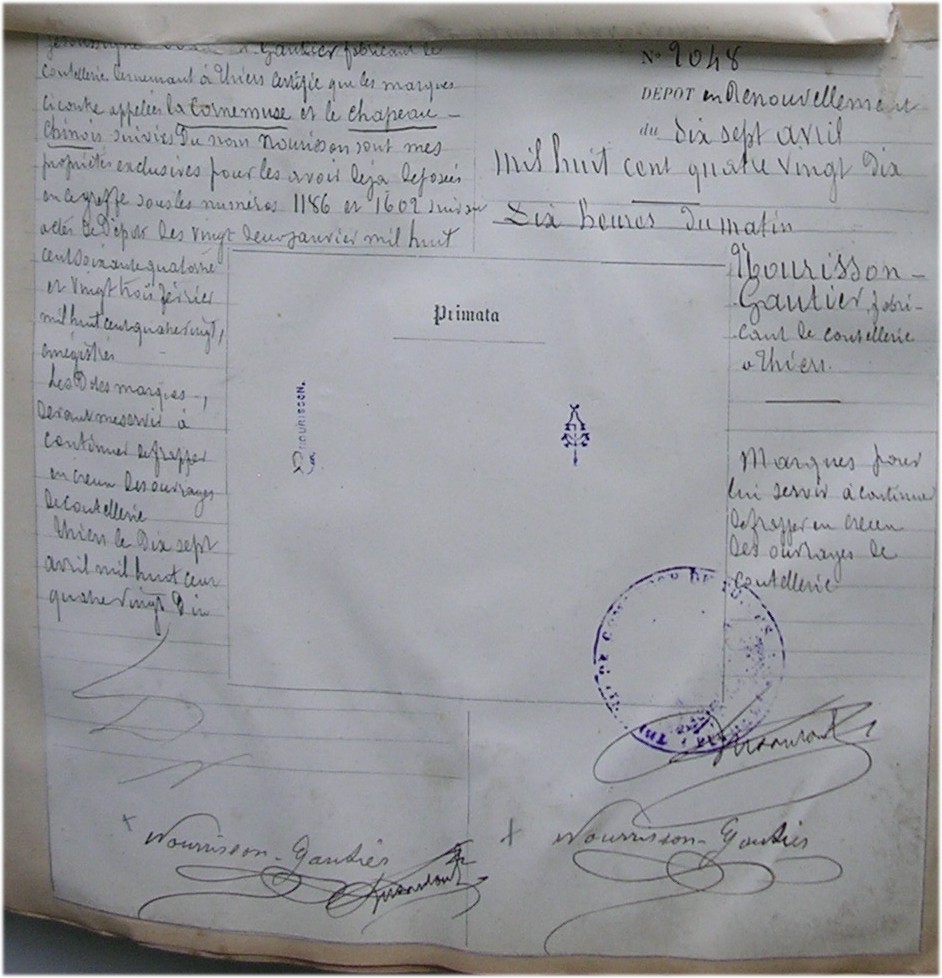 Gautier fabricant de
coutellerie demeurant à Thiers certifie que les marques
ci contre appelées la Cornemuse et le Chapeau -
Chinois suivies du nom Nourisson sont mes
propriétés exclusives pour les avoir déjà déposées
en ce greffe sous les numéros 1186 et 1602 suivant
actes de Dépôt des vingt deux janvier mil huit
cent soixante quatorze
et vingt trois février
mil huit cent quatre vingt,
enregistrés
Les D tes marques,
devant me servir à
continuer de frapper
en creux des ouvrages
de coutellerie
Thiers le Dix sept
avril mil huit cent
quatre vingt Dix
No 2048
DÉPOT en Renouvellement
du Dix sept avril
Mil huit cent quatre vingt Dix
Dix heures Du matin
Nourisson -
Gautier, fabri-
cant de coutellerie
à Thiers.
Marques pour
lui servir à continuer
de frapper en creux
des ouvrages de
coutellerie
Primata
NOURISSON
Nourrisson - Gautier
Nourrisson - Gautier